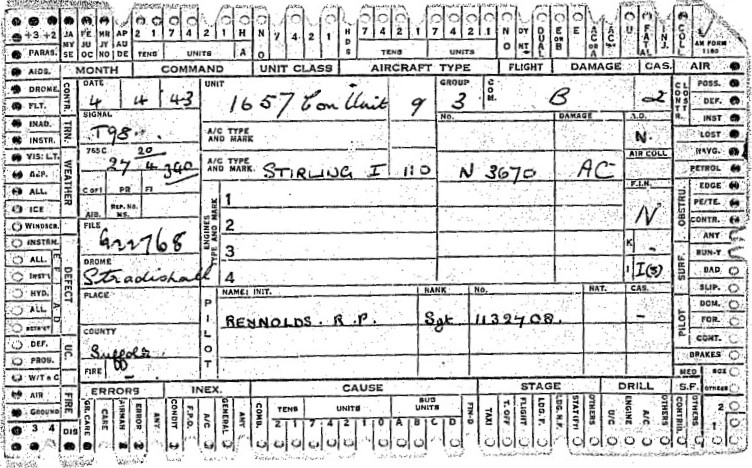 +3 +2 JA MY SE FE JU OC MR JY NO AP AU DE 2 1 7 4 2 1 H NO 7 4 2 1 HDS 7 4 2 1 7 4 2 1 NO DY NT DUAL E or B E AC or A U FATAL INJ. COLL AM FORM 1180
TENS UNITS A TENS UNITS TENS UNITS
PARAS.
AIDS. CONTR. MONTH COMMAND UNIT CLASS AIRCRAFT TYPE FLIGHT DAMAGE CAS. AIR
DROME. DATE UNIT GROUP COM. POSS.
4 4 43 1657 Con Unit 9 3 B 2 DEF.
FLT. SIGNAL A/C TYPE AND MARK No. DAMAGE INST
INAD. TRN. T98 N. LOST
INSTR. 765C 20 AIR COLL NAVG.
VIS: LT. 27 4 340 A/C TYPE AND MARK. STIRLING I 110 N 3670 AC PETROL
WEATHER ALL. C of I PR FI ENGINES TYPE AND MARK 1 F.I.N. OBSTRU. EDGE
ICE AIB. REP. No. MS. N PE/TE.
WINDSCR. FILE 2 CONTR.
INSTRM. 922768 3 K - ANY
ALL. DEFECT DROME SURF. RUN-Y
INST'S Stradishall 4 I I(3) BAD
HYD. PLACE PILOT NAME: INIT. RANK No. NAT. CAS. SLIP.
ALL REYNOLDS. R.P. Sgt 1132708. - PILOT DOM.
COUNTY FOR.
DEF. UC. Suffolk CONT.
PROU. FIRE BRAKES
W/T & C MED BOX
AIR FIRE ERRORS INEX. CAUSE STAGE DRILL S.F. OTHERS
GROUND GR. CARE CARE AIRMAN ERROR ANY CONDIT F.P.O. A/C GENERAL ANY COND. TENS UNITS SUB UNITS FIN-D TAXI T. OFF FLIGHT LDG. F. LDG. N.F. OTHERS U/C ENGINE A/C OTHERS CONTRIB. OTHERS 2
3 4 DIS 2 1 7 4 2 1 0 A B C D 1